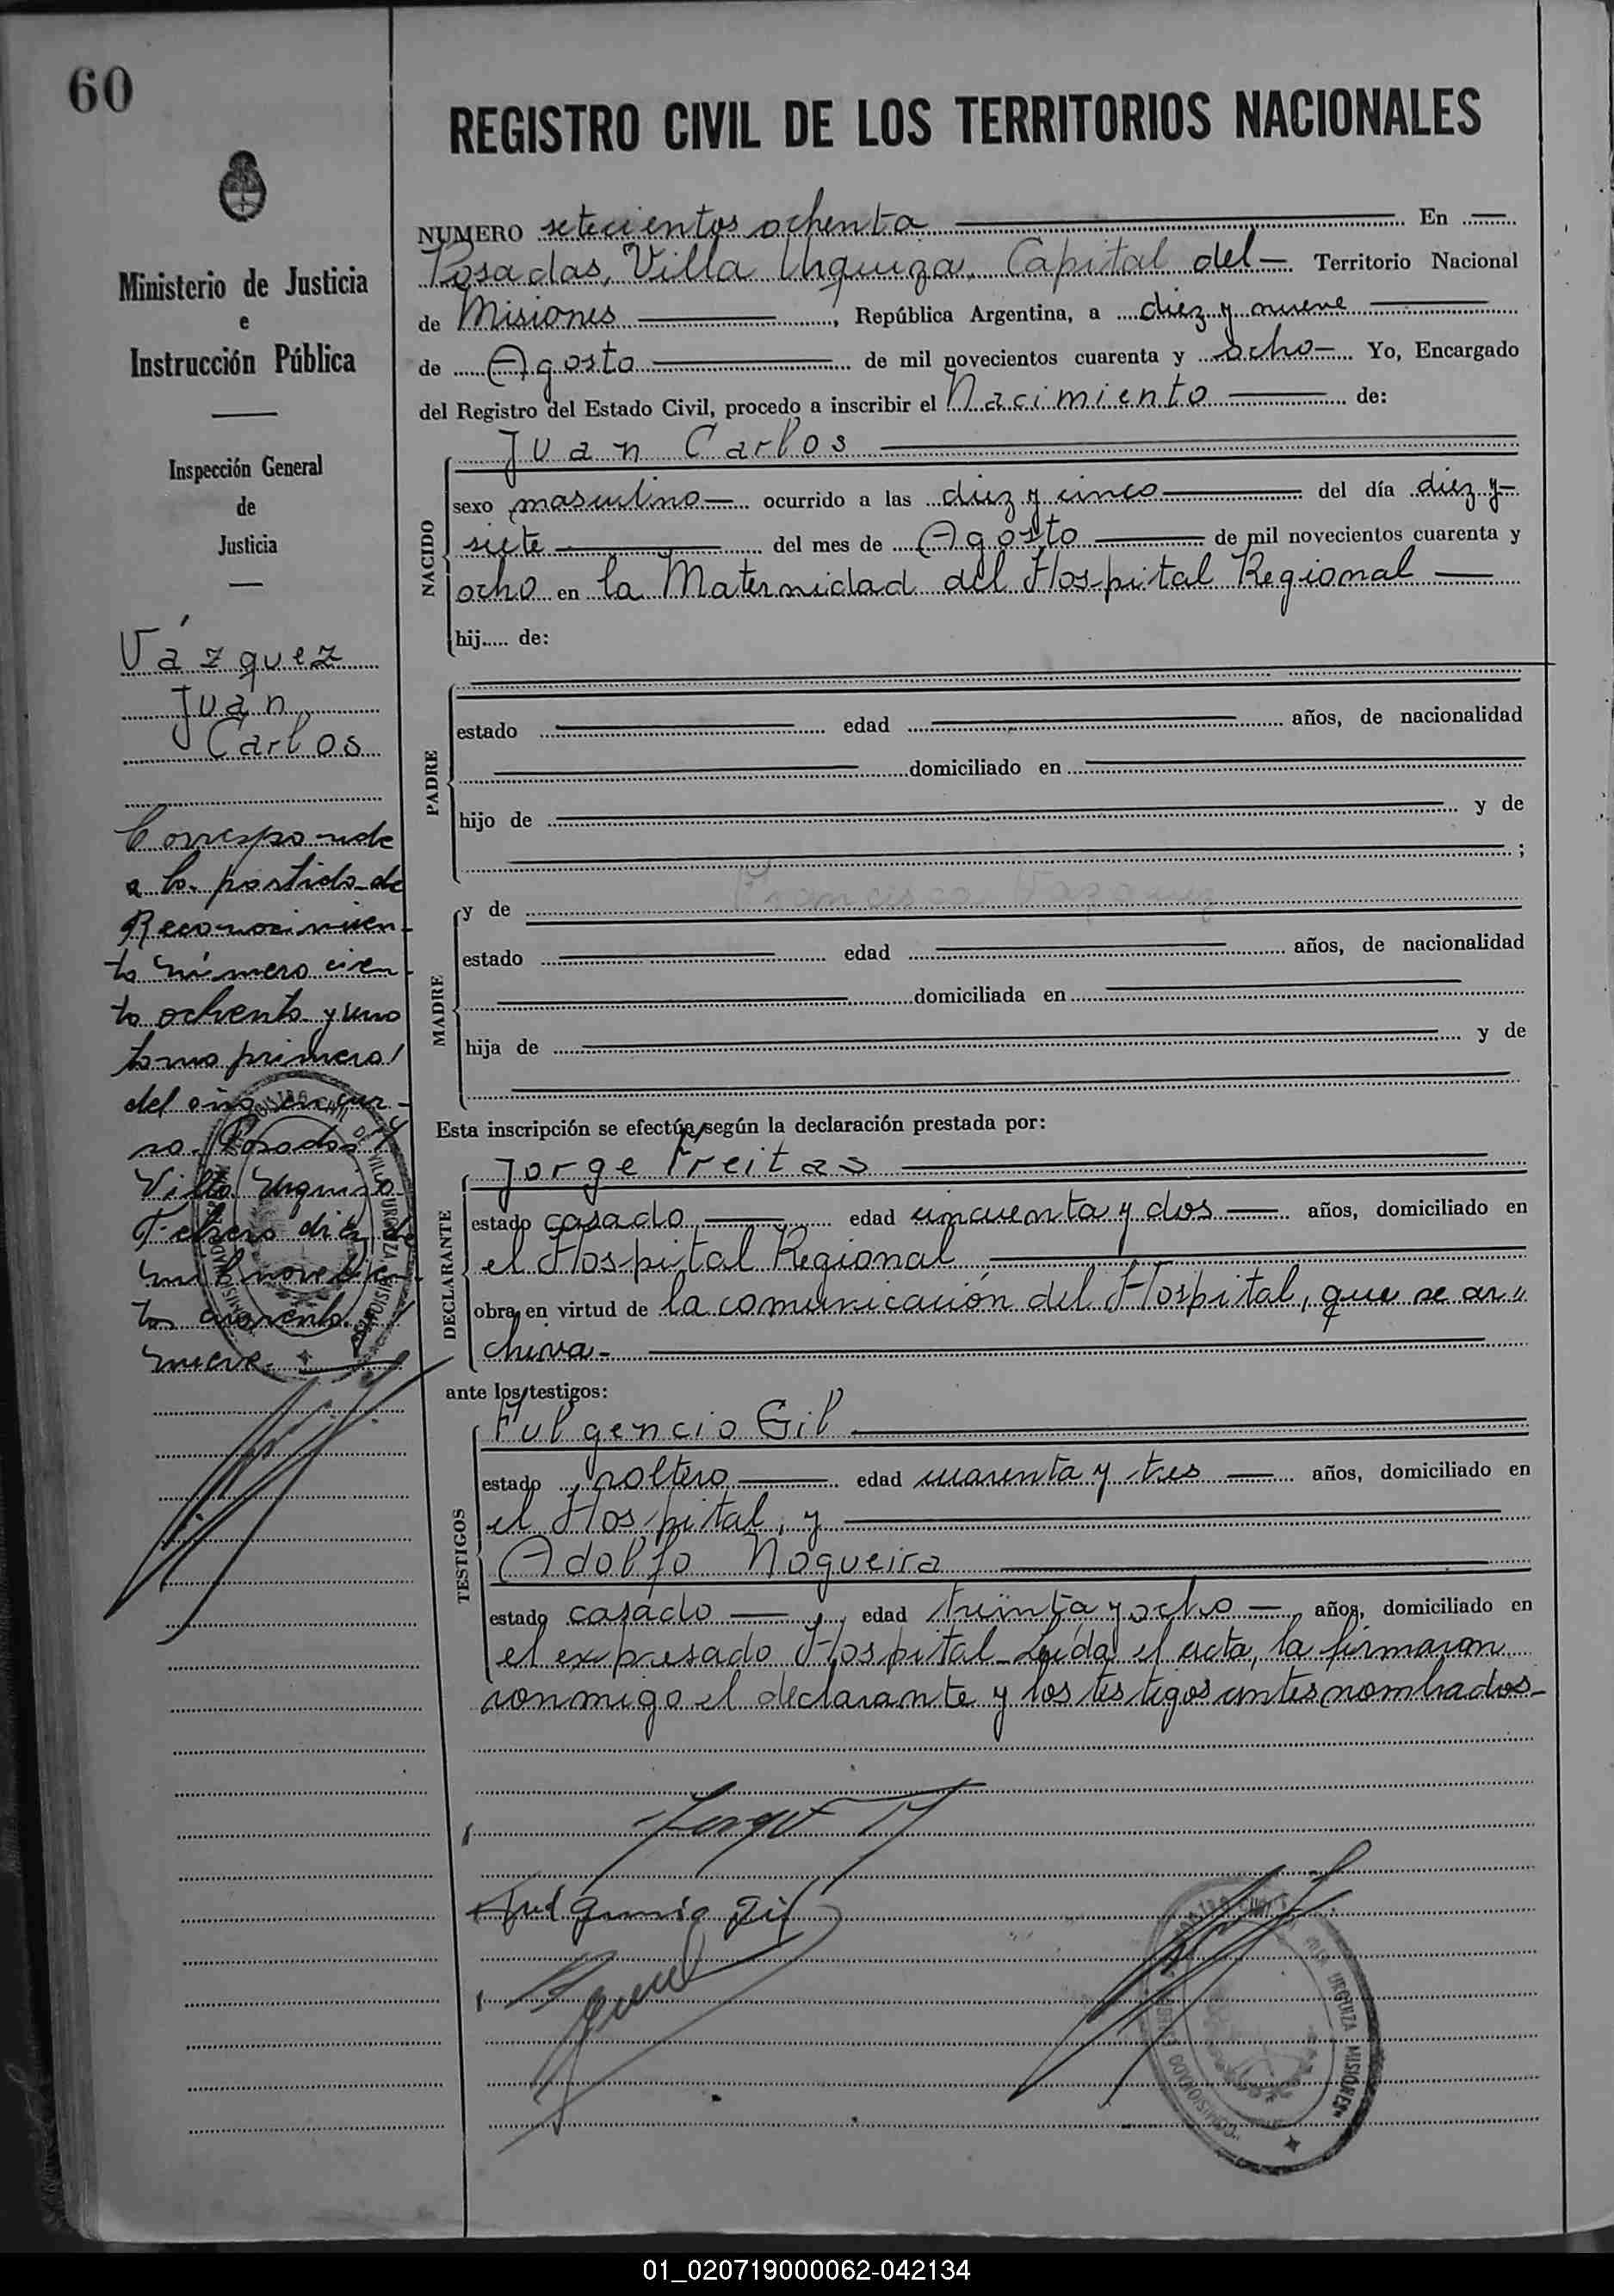 60
REGISTRO CIVIL DE LOS TERRITORIOS NACIONALES
Ministerio de Justicia
e
Instrucción Pública
Inspección General
de
Justicia
Vázquez
Juan
Carlos
Corresponde
a la partida de
Reconocimien-
to número cien-
to ochenta y uno
tomo primero
del año en cur-
so. Posadas
Villa Urquiza
Febrero diez de
mil novecien-
tos cuarenta y
nueve.
NUMERO setecientos ochenta En
Posadas, Villa Urquiza, Capital del Territorio Nacional
de Misiones, República Argentina, a diez y nueve
de Agosto de mil novecientos cuarenta y ocho Yo, Encargado
del Registro del Estado Civil, procedo a inscribir el Nacimiento de:
NACIDO
Juan Carlos
sexo masculino ocurrido a las diez y cinco del día diez y
siete del mes de Agosto de mil novecientos cuarenta y
ocho en la Maternidad del Hospital Regional
hij..... de:
PADRE
estado edad años, de nacionalidad
domiciliado en
hijo de y de
;
MADRE
y de Francisca Vazquez
estado edad años, de nacionalidad
domiciliada en
hija de y de
Esta inscripción se efectúa según la declaración prestada por:
DECLARANTE
Jorge Freitas
estado casado edad cincuenta y dos años, domiciliado en
el Hospital Regional
obra en virtud de la comunicación del Hospital, que se ar"
chiva-
ante los testigos:
TESTIGOS
Fulgencio Gil
estado soltero edad cuarenta y tres años, domiciliado en
el Hospital, y
Adolfo Nogueira
estado casado edad treinta y ocho años, domiciliado en
el expresado Hospital- Leída el acta, la firmaron
conmigo el declarante y los testigos antes nombrados-
Fulgencio Gil
URQUIZA MISIONES
01_020719000062-042134